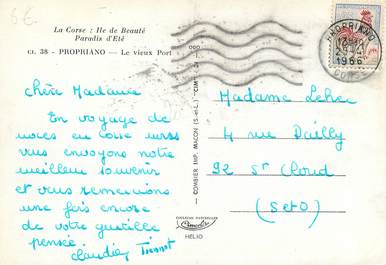 La Corse : Ile de Beauté
Paradis d'Eté
CI. 38 - PROPRIANO — Le vieux Port
PROPRIANO
1966
chère Madame
En voyage de
noces en Corse nous
vous envoyons notre
meilleur souvenir
et vous remercions
une fois encore
de votre gentille
pensée.
COMBIER IMP. MACON (S.-et-L.) CIM
HELIO
Madame
4 rue Dailly
92 St Cloud
(S et O)